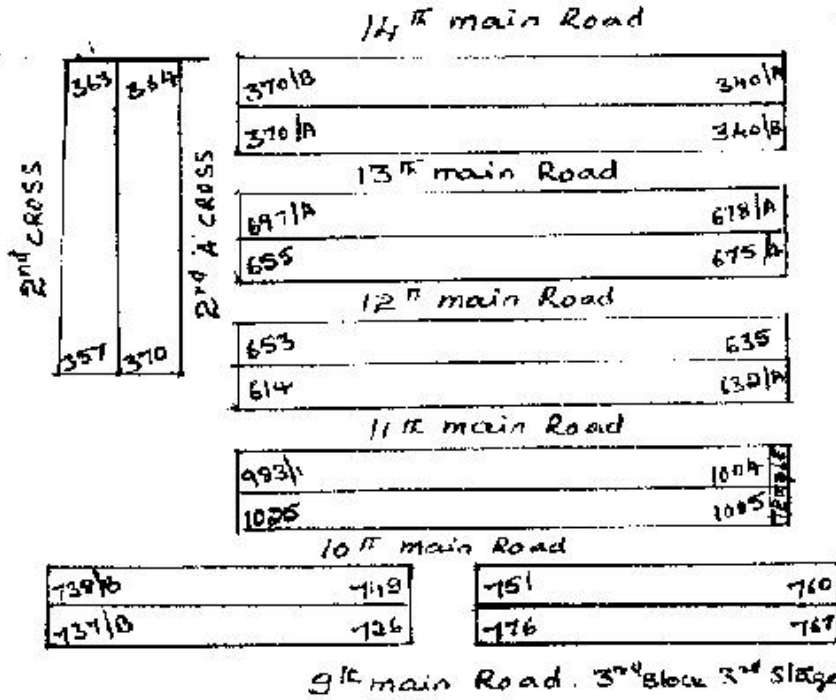 14th main Road
363 364
370/B 340/A
370/A 340/B
13th main Road
2nd CROSS
2nd A CROSS
697/A 678/A
655 675/A
12th main Road
653 635
357 370
614 632/A
11th main Road
983/1 1004
1025 1005
TEMPLE
10th main Road
738/B 749 751 760
737/B 726 776 767
9th main Road. 3rd Block 3rd Stage